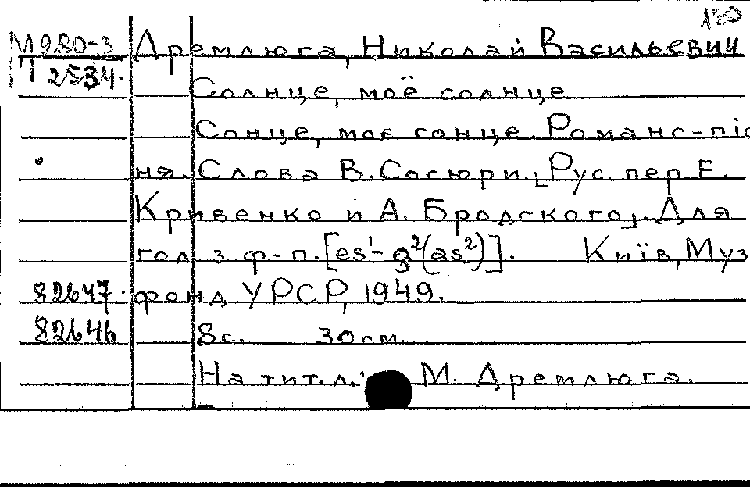 М980-3 Дремлюга, Николай Васильевич
2534. Солнце, моё солнце
Сонце, моє сонце. Романс-піс
ня. Слова В. Сосюри. [Рус. пер. Е.
Кривенко и А. Бродского]. Для
гол. з ф-п. [es¹-g²(as²)]. Київ, Муз.
82647. фонд УРСР, 1949.
82646 8с. 30см.
На тит. л.: М. Дремлюга.